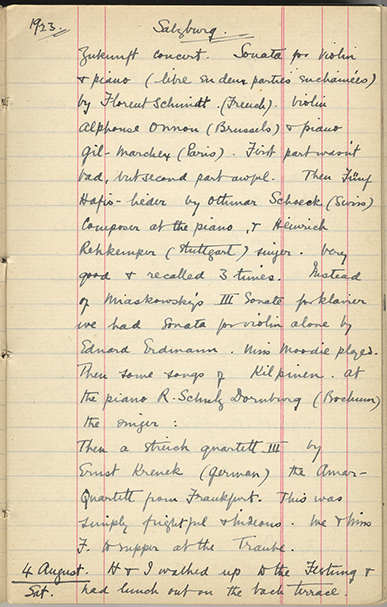 1923. Salzburg.
Zukunft concert. Sonata for violin
& piano (libre en deux parties enchainées)
by Florent Schmidt (French). Violin
Alphonse Onnou (Brussels) & piano
Gil-Marchex (Paris). First part wasn't
bad, but second part awful. Then Fünf
Hafis-lieder by Othmar Schoeck (Swiss)
Composer at the piano, & Heinrich
Rehkemper (Stuttgart) singer. Very
good & recalled 3 times. Instead
of Miaskowsky's III Sonate für klavier
we had Sonata for violin alone by
Eduard Erdmann. Miss Moodie played.
Then some songs of Kilpinen. At
the piano R. Schulz Dornburg (Bochum)
the singer :
Then a streich quartett III by
Ernst Krenek (German) the Amar-
Quartett from Frankfurt. This was
simply frightful & hideous. We & Miss
F. to supper at the Traube.
4 August. H & I walked up to the Festung &
Sat. had lunch out on the back terrace.